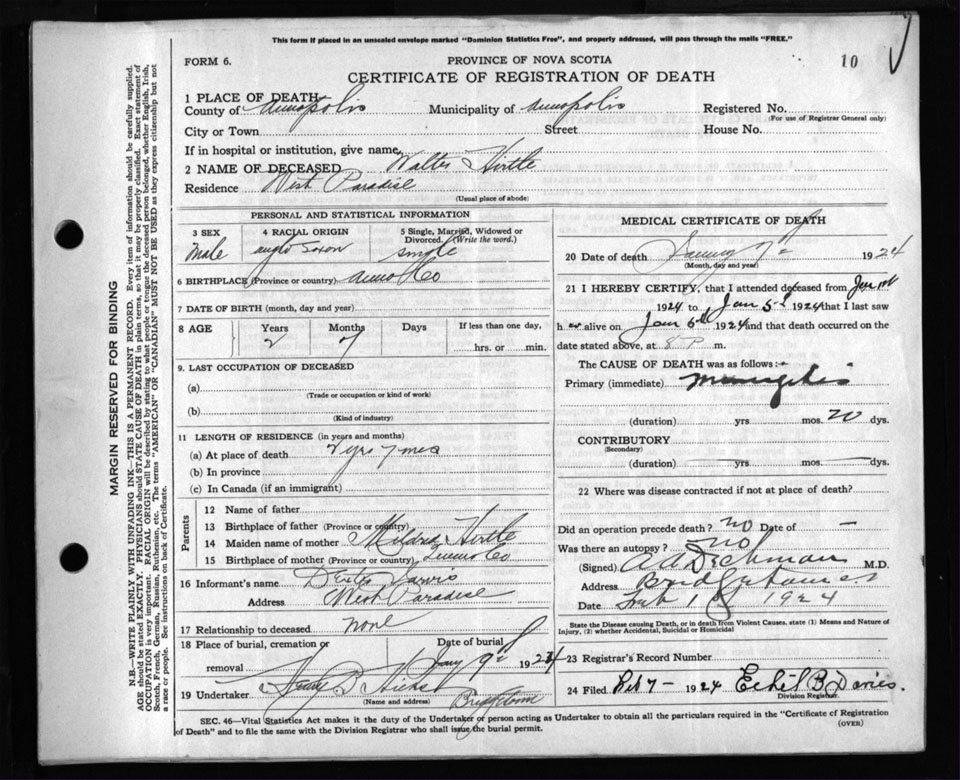 This form if placed in an unsealed envelope marked "Dominion Statistics Free", and properly addressed, will pass through the mails "FREE."
FORM 6.
PROVINCE OF NOVA SCOTIA
10
CERTIFICATE OF REGISTRATION OF DEATH
MARGIN RESERVED FOR BINDING
N.B.—WRITE PLAINLY WITH UNFADING INK—THIS IS A PERMANENT RECORD. Every item of information should be carefully supplied.
AGE should be stated EXACTLY. PHYSICIANS should STATE CAUSE OF DEATH in plain terms, so that it may be properly classified. Exact statement of
OCCUPATION is very important. RACIAL ORIGIN will be described by stating to what people or tongue the deceased person belonged, whether English, Irish,
Scotch, French, German, Russian, Ruthenian, etc. The terms "AMERICAN" OR "CANADIAN" MUST NOT BE USED as they express citizenship but not
a race or people. See instructions on back of Certificate.
1 PLACE OF DEATH
County of Annapolis Municipality of Annapolis Registered No.
(For use of Registrar General only)
City or Town Street House No.
If in hospital or institution, give name
2 NAME OF DECEASED Walter Hirtle
Residence West Paradise
(Usual place of abode)
PERSONAL AND STATISTICAL INFORMATION
3 SEX 4 RACIAL ORIGIN 5 Single, Married, Widowed or Divorced. (Write the word.)
Male anglo Saxon single
6 BIRTHPLACE (Province or country) Anna Co
7 DATE OF BIRTH (month, day and year)
8 AGE Years Months Days If less than one day,
2 7 hrs. or min.
9. LAST OCCUPATION OF DECEASED
(a)
(Trade or occupation or kind of work)
(b)
(Kind of industry)
11 LENGTH OF RESIDENCE (in years and months)
(a) At place of death 2 yrs 7 mos
(b) In province
(c) In Canada (if an immigrant)
Parents
12 Name of father
13 Birthplace of father (Province or country)
14 Maiden name of mother Hirtle
15 Birthplace of mother (Province or country) Anna Co
16 Informant's name
Address West Paradise
17 Relationship to deceased none
18 Place of burial, cremation or removal Date of burial
Jany 9th 1924
19 Undertaker B Hicks Bridgetown
(Name and address)
MEDICAL CERTIFICATE OF DEATH
20 Date of death 1924
(Month, day and year)
21 I HEREBY CERTIFY, that I attended deceased from Jan
1924 to Jan 5th 1924 that I last saw
h alive on Jan 5th 1924 and that death occurred on
date stated above, at 8 P m.
The CAUSE OF DEATH was as follows:
Primary (immediate) Meningitis
(duration) yrs mos. 20 dys.
CONTRIBUTORY
(Secondary)
(duration) yrs mos. dys.
22 Where was disease contracted if not at place of death?
Did an operation precede death? no Date of —
Was there an autopsy? no
(Signed) Dechman M.D.
Address Bridgetown
Date Feb 1 1924
State the Disease causing Death, or in death from Violent Causes, state (1) Means and Nature of
Injury, (2) whether Accidental, Suicidal or Homicidal
23 Registrar's Record Number
24 Filed Feb 7 - 1924 Ethel B. Davies.
Division Registrar.
SEC. 46—Vital Statistics Act makes it the duty of the Undertaker or person acting as Undertaker to obtain all the particulars required in the "Certificate of Registration
of Death" and to file the same with the Division Registrar who shall issue the burial permit.
(OVER)